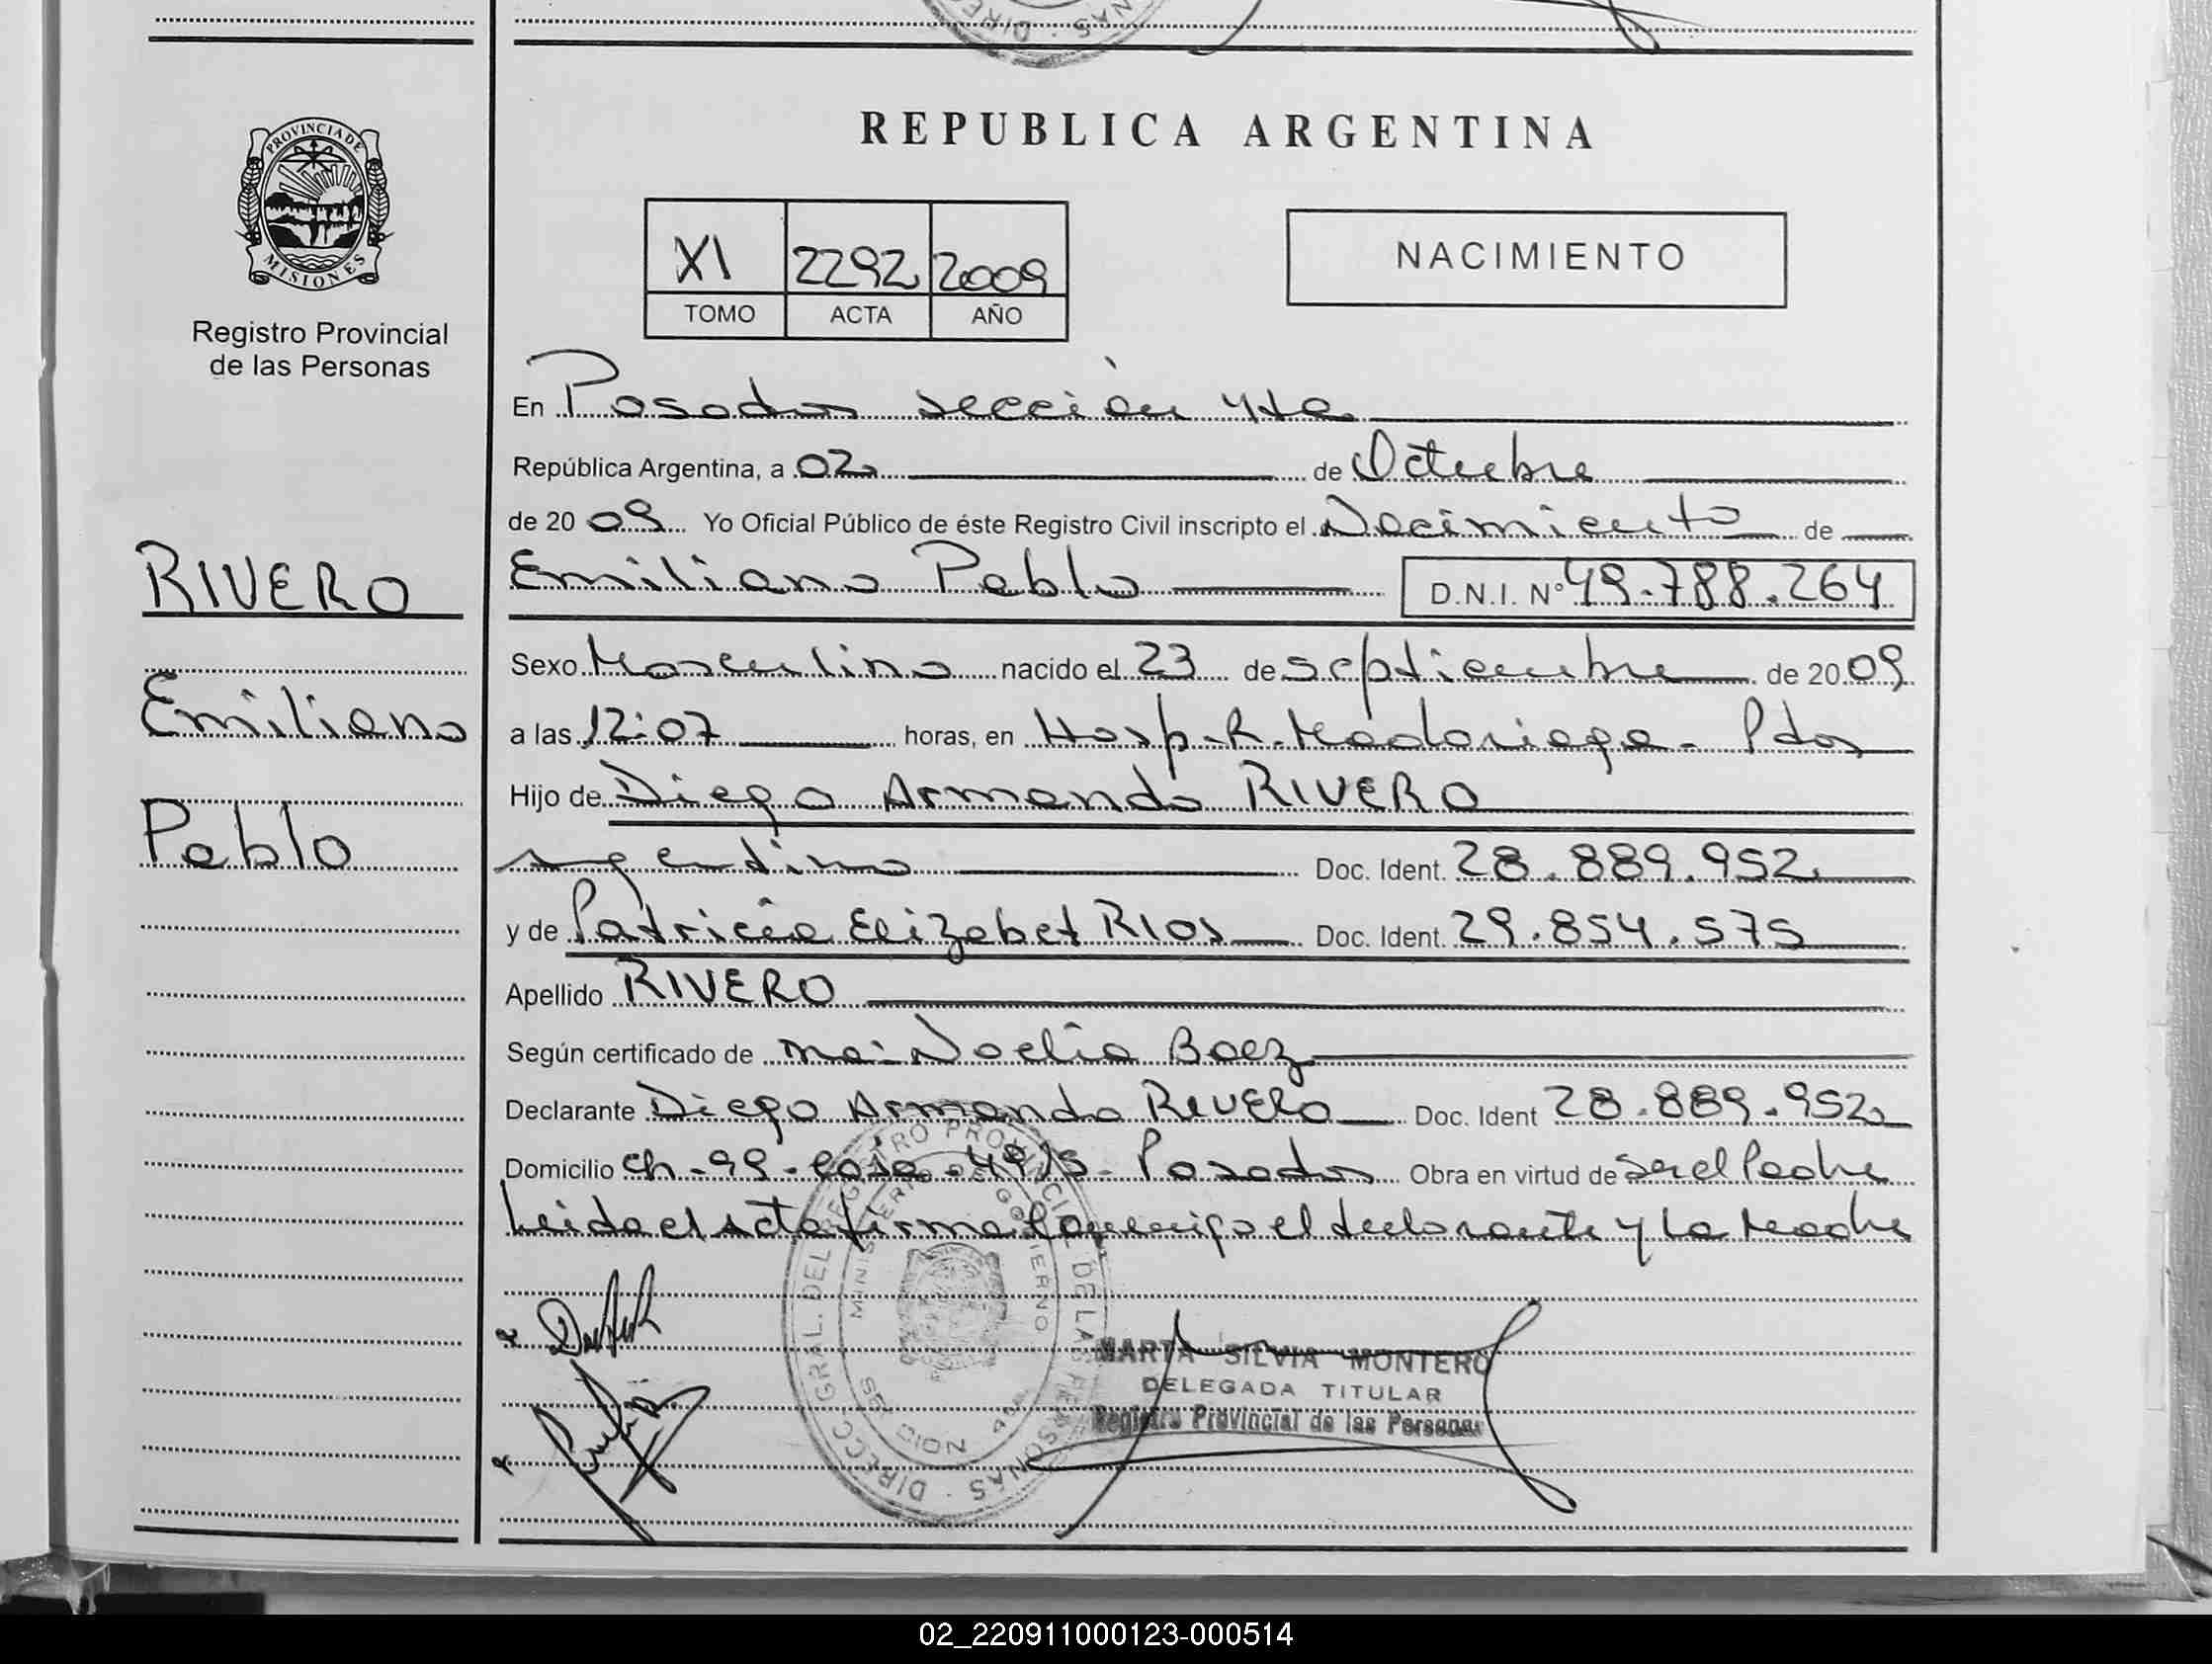 REPUBLICA ARGENTINA
PROVINCIA DE
MISIONES
Registro Provincial
de las Personas
XI 2292 2009
TOMO ACTA AÑO
NACIMIENTO
En Posadas sección 4ta
República Argentina, a 02 de Octubre
de 20 09 Yo Oficial Público de éste Registro Civil inscripto el Nacimiento de
Emiliano Pablo D.N.I. Nº 49.788.264
RIVERO
Emiliano
Pablo
Sexo Masculino nacido el 23 de septiembre de 20 09
a las 12:07 horas, en Hosp. R. Madariaga - Pdas
Hijo de Diego Armando RIVERO
argentino Doc. Ident. 28.889.952
y de Patricia Elizabet RIOS Doc. Ident. 29.854.575
Apellido RIVERO
Según certificado de Ma: Noelia Baez
Declarante Diego Armando RIVERO Doc. Ident 28.889.952
Domicilio Ch - 99 - casa - Posadas Obra en virtud de ser el Padre
Leida el acta firma conmigo el declarante y la Madre
DIRECC. GRAL. DEL REGISTRO PROVINCIAL DE LAS PERSONAS
MINISTERIO DE GOBIERNO
MARTA SILVIA MONTERO
DELEGADA TITULAR
Registro Provincial de las Personas
02_220911000123-000514